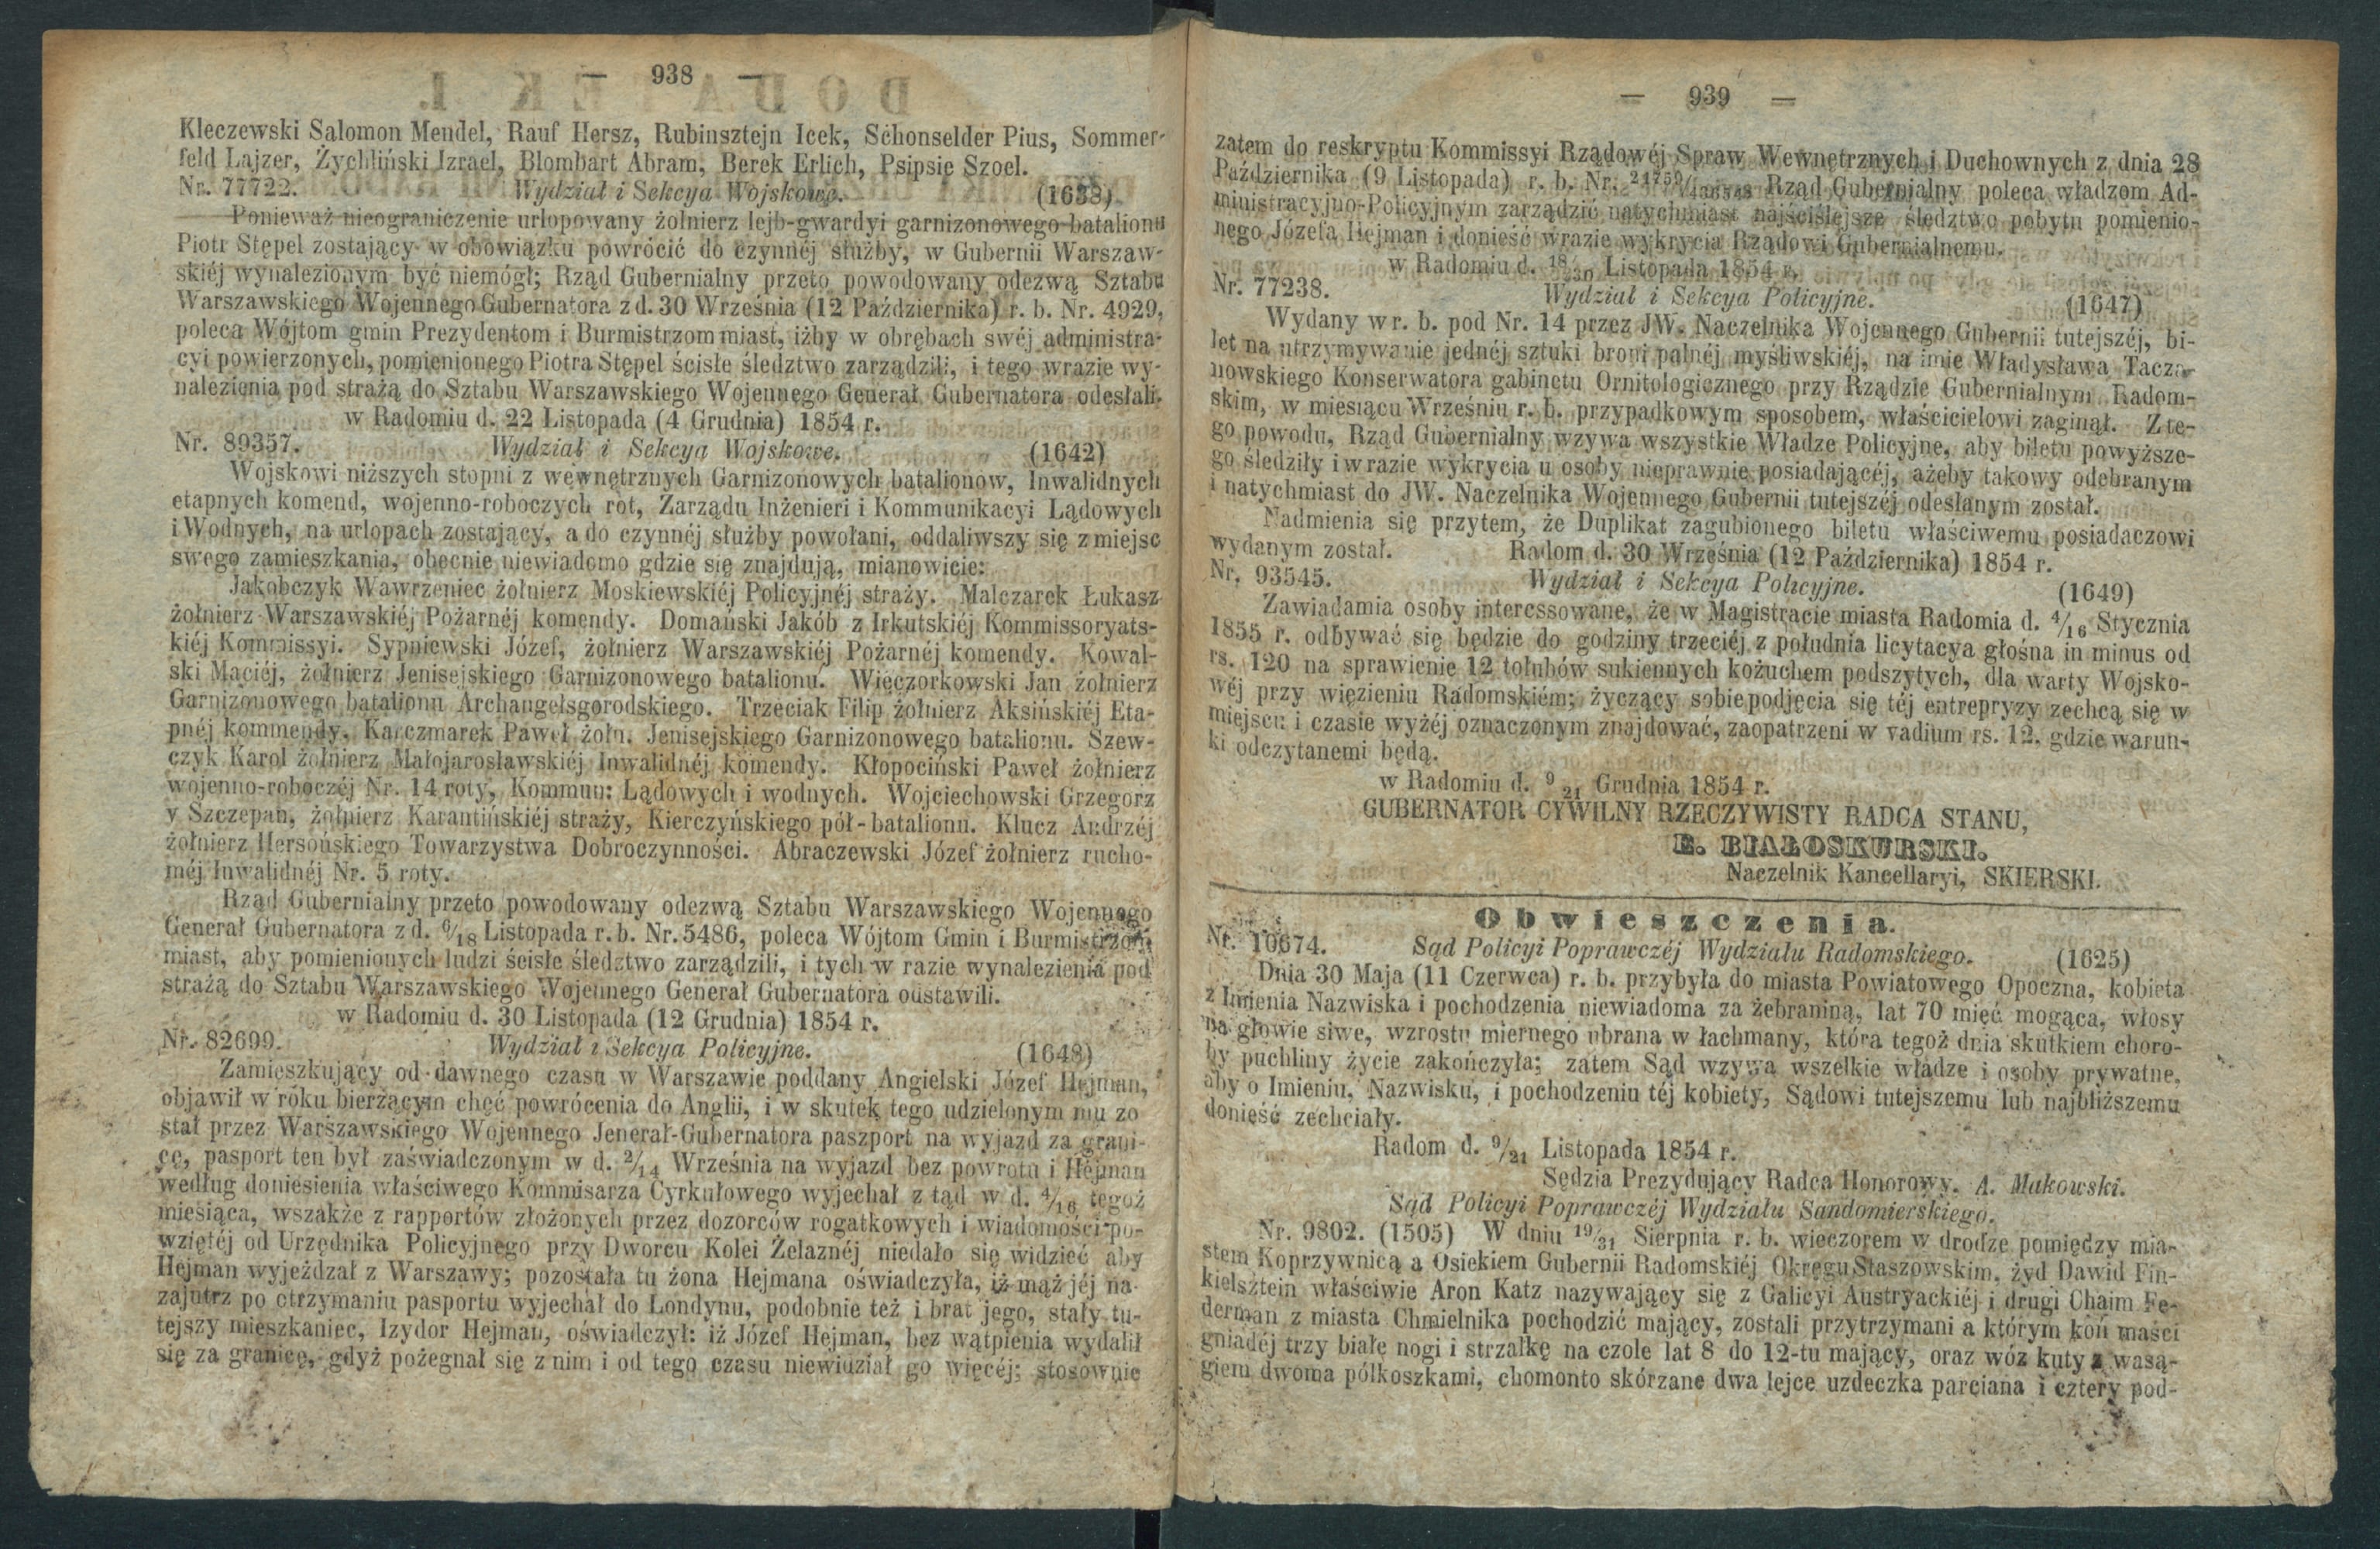 — 938 —
Kleczewski Salomon Mendel, Rauf Hersz, Rubinsztejn Icek, Schonselder Pius, Sommer-
feld Lajzer, Żychliński Izrael, Blombart Abram, Berek Erlich, Psipsie Szoel.
Nr. 77722. Wydział i Sekcya Wojskowe. (1638)
Ponieważ nieograniczenie urlopowany żołnierz lejb-gwardyi garnizonowego batalionu
Piotr Stępel zostający w obowiązku powrócić do czynnéj służby, w Gubernii Warszaw-
skiéj wynalezionym być niemógł; Rząd Gubernialny przeto powodowany odezwą Sztabu
Warszawskiego Wojennego Gubernatora z d. 30 Września (12 Października) r. b. Nr. 4929,
poleca Wójtom gmin Prezydentom i Burmistrzom miast, iżby w obrębach swéj administra-
cyi powierzonych, pomienionego Piotra Stępel ścisłe śledztwo zarządzili, i tego wrazie wy-
nalezienia pod strażą do Sztabu Warszawskiego Wojennego Generał Gubernatora odesłali.
w Radomiu d. 22 Listopada (4 Grudnia) 1854 r.
Nr. 89357. Wydział i Sekcya Wojskowe. (1642)
Wojskowi niższych stopni z wewnętrznych Garnizonowych batalionów, Inwalidnych
etapnych komend, wojenno-roboczych rot, Zarządu Inżenieri i Kommunikacyi Lądowych
i Wodnych, na urlopach zostający, a do czynnéj służby powołani, oddaliwszy się z miejsc
swego zamieszkania, obecnie niewiadomo gdzie się znajdują, mianowicie:
Jakobczyk Wawrzeniec żołnierz Moskiewskiéj Policyjnéj straży. Malczarek Łukasz
żołnierz Warszawskiéj Pożarnéj komendy. Domański Jakób z Irkutskiéj Kommissoryats-
kiéj Kommissyi. Sypniewski Józef, żołnierz Warszawskiéj Pożarnéj komendy. Kowal-
ski Maciéj, żołnierz Jenisejskiego Garnizonowego batalionu. Więczorkowski Jan żołnierz
Garnizonowego batalionu Archangelsgorodskiego. Trzeciak Filip żołnierz Aksińskiéj Eta-
pnéj kommendy. Karczmarek Paweł żołn. Jenisejskiego Garnizonowego batalionu. Szew-
czyk Karol żołnierz Małojarosławskiéj Inwalidnéj komendy. Kłopociński Paweł żołnierz
wojenno-roboczéj Nr. 14 roty, Kommun: Lądowych i wodnych. Wojciechowski Grzegorz
y Szczepan, żołnierz Karantińskiéj straży, Kierczyńskiego pół-batalionu. Klucz Andrzéj
żołnierz Hersońskiego Towarzystwa Dobroczynności. Abraczewski Józef żołnierz rucho-
méj Inwalidnéj Nr. 5 roty.
Rząd Gubernialny przeto powodowany odezwą Sztabu Warszawskiego Wojennego
Generał Gubernatora z d. 6/18 Listopada r. b. Nr. 5486, poleca Wójtom Gmin i Burmistrzom
miast, aby pomienionych ludzi ścisłe śledztwo zarządzili, i tych w razie wynalezienia pod
strażą do Sztabu Warszawskiego Wojennego Generał Gubernatora odstawili.
w Radomiu d. 30 Listopada (12 Grudnia) 1854 r.
Nr. 82699. Wydział i Sekcya Policyjne. (1648)
Zamieszkujący od dawnego czasu w Warszawie poddany Angielski Józef Hejman,
objawił w roku bierżącym chęć powrócenia do Anglii, i w skutek tego udzielonym mu zo
stał przez Warszawskiego Wojennego Jenerał-Gubernatora paszport na wyjazd za grani-
cę, pasport ten był zaświadczonym w d. 2/14 Września na wyjazd bez powrotu i Hejman
według doniesienia właściwego Kommisarza Cyrkułowego wyjechał z tąd w d. 4/16 tegoż
miesiąca, wszakże z rapportów złożonych przez dozorców rogatkowych i wiadomości po-
wziętéj od Urzędnika Policyjnego przy Dworcu Kolei Żelaznéj niedało się widzieć aby
Hejman wyjeżdzał z Warszawy; pozostała tu żona Hejmana oświadczyła, iż mąż jéj na-
zajutrz po otrzymaniu pasportu wyjechał do Londynu, podobnie też i brat jego, stały tu-
tejszy mieszkaniec, Izydor Hejman, oświadczył: iż Józef Hejman, bez wątpienia wydalił
się za granicę, gdyż pożegnał się z nim i od tego czasu niewidział go więcéj; stosownie
— 939 —
zatem do reskryptu Kommissyi Rządowéj Spraw Wewnętrznych i Duchownych z dnia 28
Października (9 Listopada) r. b. Nr. Rząd Gubernialny poleca władzom Ad-
ministracyjno-Policyjnym zarządzić natychmiast najściślejsze śledztwo pobytu pomienio-
nego Józefa Hejman i donieść wrazie wykrycia Rządowi Gubernialnemu.
w Radomiu d. 18/30 Listopada 1854 r.
Nr. 77238. Wydział i Sekcya Policyjne. (1647)
Wydany w r. b. pod Nr. 14 przez JW. Naczelnika Wojennego Gubernii tutejszéj, bi-
let na utrzymywanie jednéj sztuki broni palnéj myśliwskiéj, na imie Władysława Tacza-
nowskiego Konserwatora gabinetu Ornitologicznego przy Rządzie Gubernialnym Radom-
skim, w miesiącu Wrześniu r. b. przypadkowym sposobem, właścicielowi zaginął. Z te-
go powodu, Rząd Gubernialny wzywa wszystkie Władze Policyjne, aby biletu powyższe-
go śledziły i w razie wykrycia u osoby nieprawnie posiadającéj, ażeby takowy odebranym
i natychmiast do JW. Naczelnika Wojennego Gubernii tutejszéj odesłanym został.
Nadmienia się przytem, że Duplikat zagubionego biletu właściwemu posiadaczowi
wydanym został. Radom d. 30 Września (12 Października) 1854 r.
Nr. 93545. Wydział i Sekcya Policyjne. (1649)
Zawiadamia osoby interessowane, że w Magistracie miasta Radomia d. 4/16 Stycznia
1855 r. odbywać się będzie do godziny trzeciéj z południa licytacya głośna in minus od
rs. 120 na sprawienie 12 tołubów sukiennych kożuchem podszytych, dla warty Wojsko-
wéj przy więzieniu Radomskiém; życzący sobie podjęcia się téj entrepryzy zechcą się w
miejscu i czasie wyżéj oznaczonym znajdować, zaopatrzeni w vadium rs. 12, gdzie warun-
ki odczytanemi będą.
w Radomiu d. 9/21 Grudnia 1854 r.
GUBERNATOR CYWILNY RZECZYWISTY RADCA STANU,
E. BIAŁOSKURSKI.
Naczelnik Kancellaryi, SKIERSKI.
Obwieszczenia.
Nr. 10674. Sąd Policyi Poprawczéj Wydziału Radomskiego. (1625)
Dnia 30 Maja (11 Czerwca) r. b. przybyła do miasta Powiatowego Opoczna, kobieta
z Imienia Nazwiska i pochodzenia niewiadoma za żebraniną, lat 70 mięć mogąca, włosy
na głowie siwe, wzrostu miernego ubrana w łachmany, która tegoż dnia skutkiem choro-
by puchliny życie zakończyła; zatem Sąd wzywa wszelkie władze i osoby prywatne,
aby o Imieniu, Nazwisku, i pochodzeniu téj kobiety, Sądowi tutejszemu lub najbliższemu
donięść zechciały.
Radom d. 9/21 Listopada 1854 r.
Sędzia Prezydujący Radca Honorowy, A. Makowski.
Sąd Policyi Poprawczéj Wydziału Sandomierskiego.
Nr. 9802. (1505) W dniu 19/31 Sierpnia r. b. wieczorem w drodze pomiędzy mia-
stem Koprzywnicą a Osiekiem Gubernii Radomskiéj Okręgu Staszowskim, żyd Dawid Fin-
kielsztein właściwie Aron Katz nazywający się z Galicyi Austryackiéj i drugi Chaim Fe-
derman z miasta Chmielnika pochodzić mający, zostali przytrzymani a którym koń maści
gniadéj trzy białe nogi i strzałkę na czole lat 8 do 12-tu mający, oraz wóz kuty z wasą-
giem dwoma półkoszkami, chomonto skórzane dwa lejce uzdeczka parciana i cztery pod-